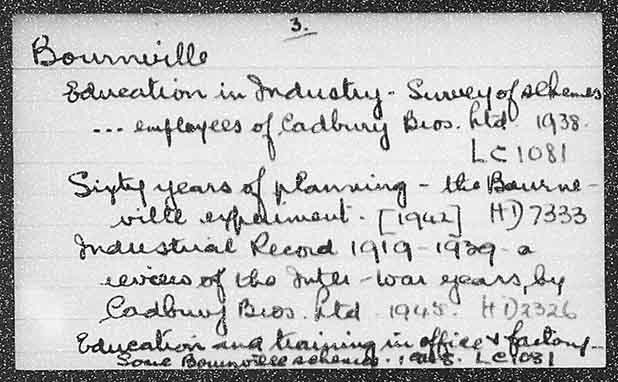 3.
Bournville
Education in Industry - Survey of schemes
... employees of Cadbury Bros. Ltd. 1938.
LC1081
Sixty years of planning - the Bourne-
ville experiment. [1942] HD7333
Industrial Record 1919-1939 - a
review of the Inter-war years, by
Cadbury Bros. Ltd. 1945. HD2326
Education and training in office & factory -
Some Bournville schemes. LC1081